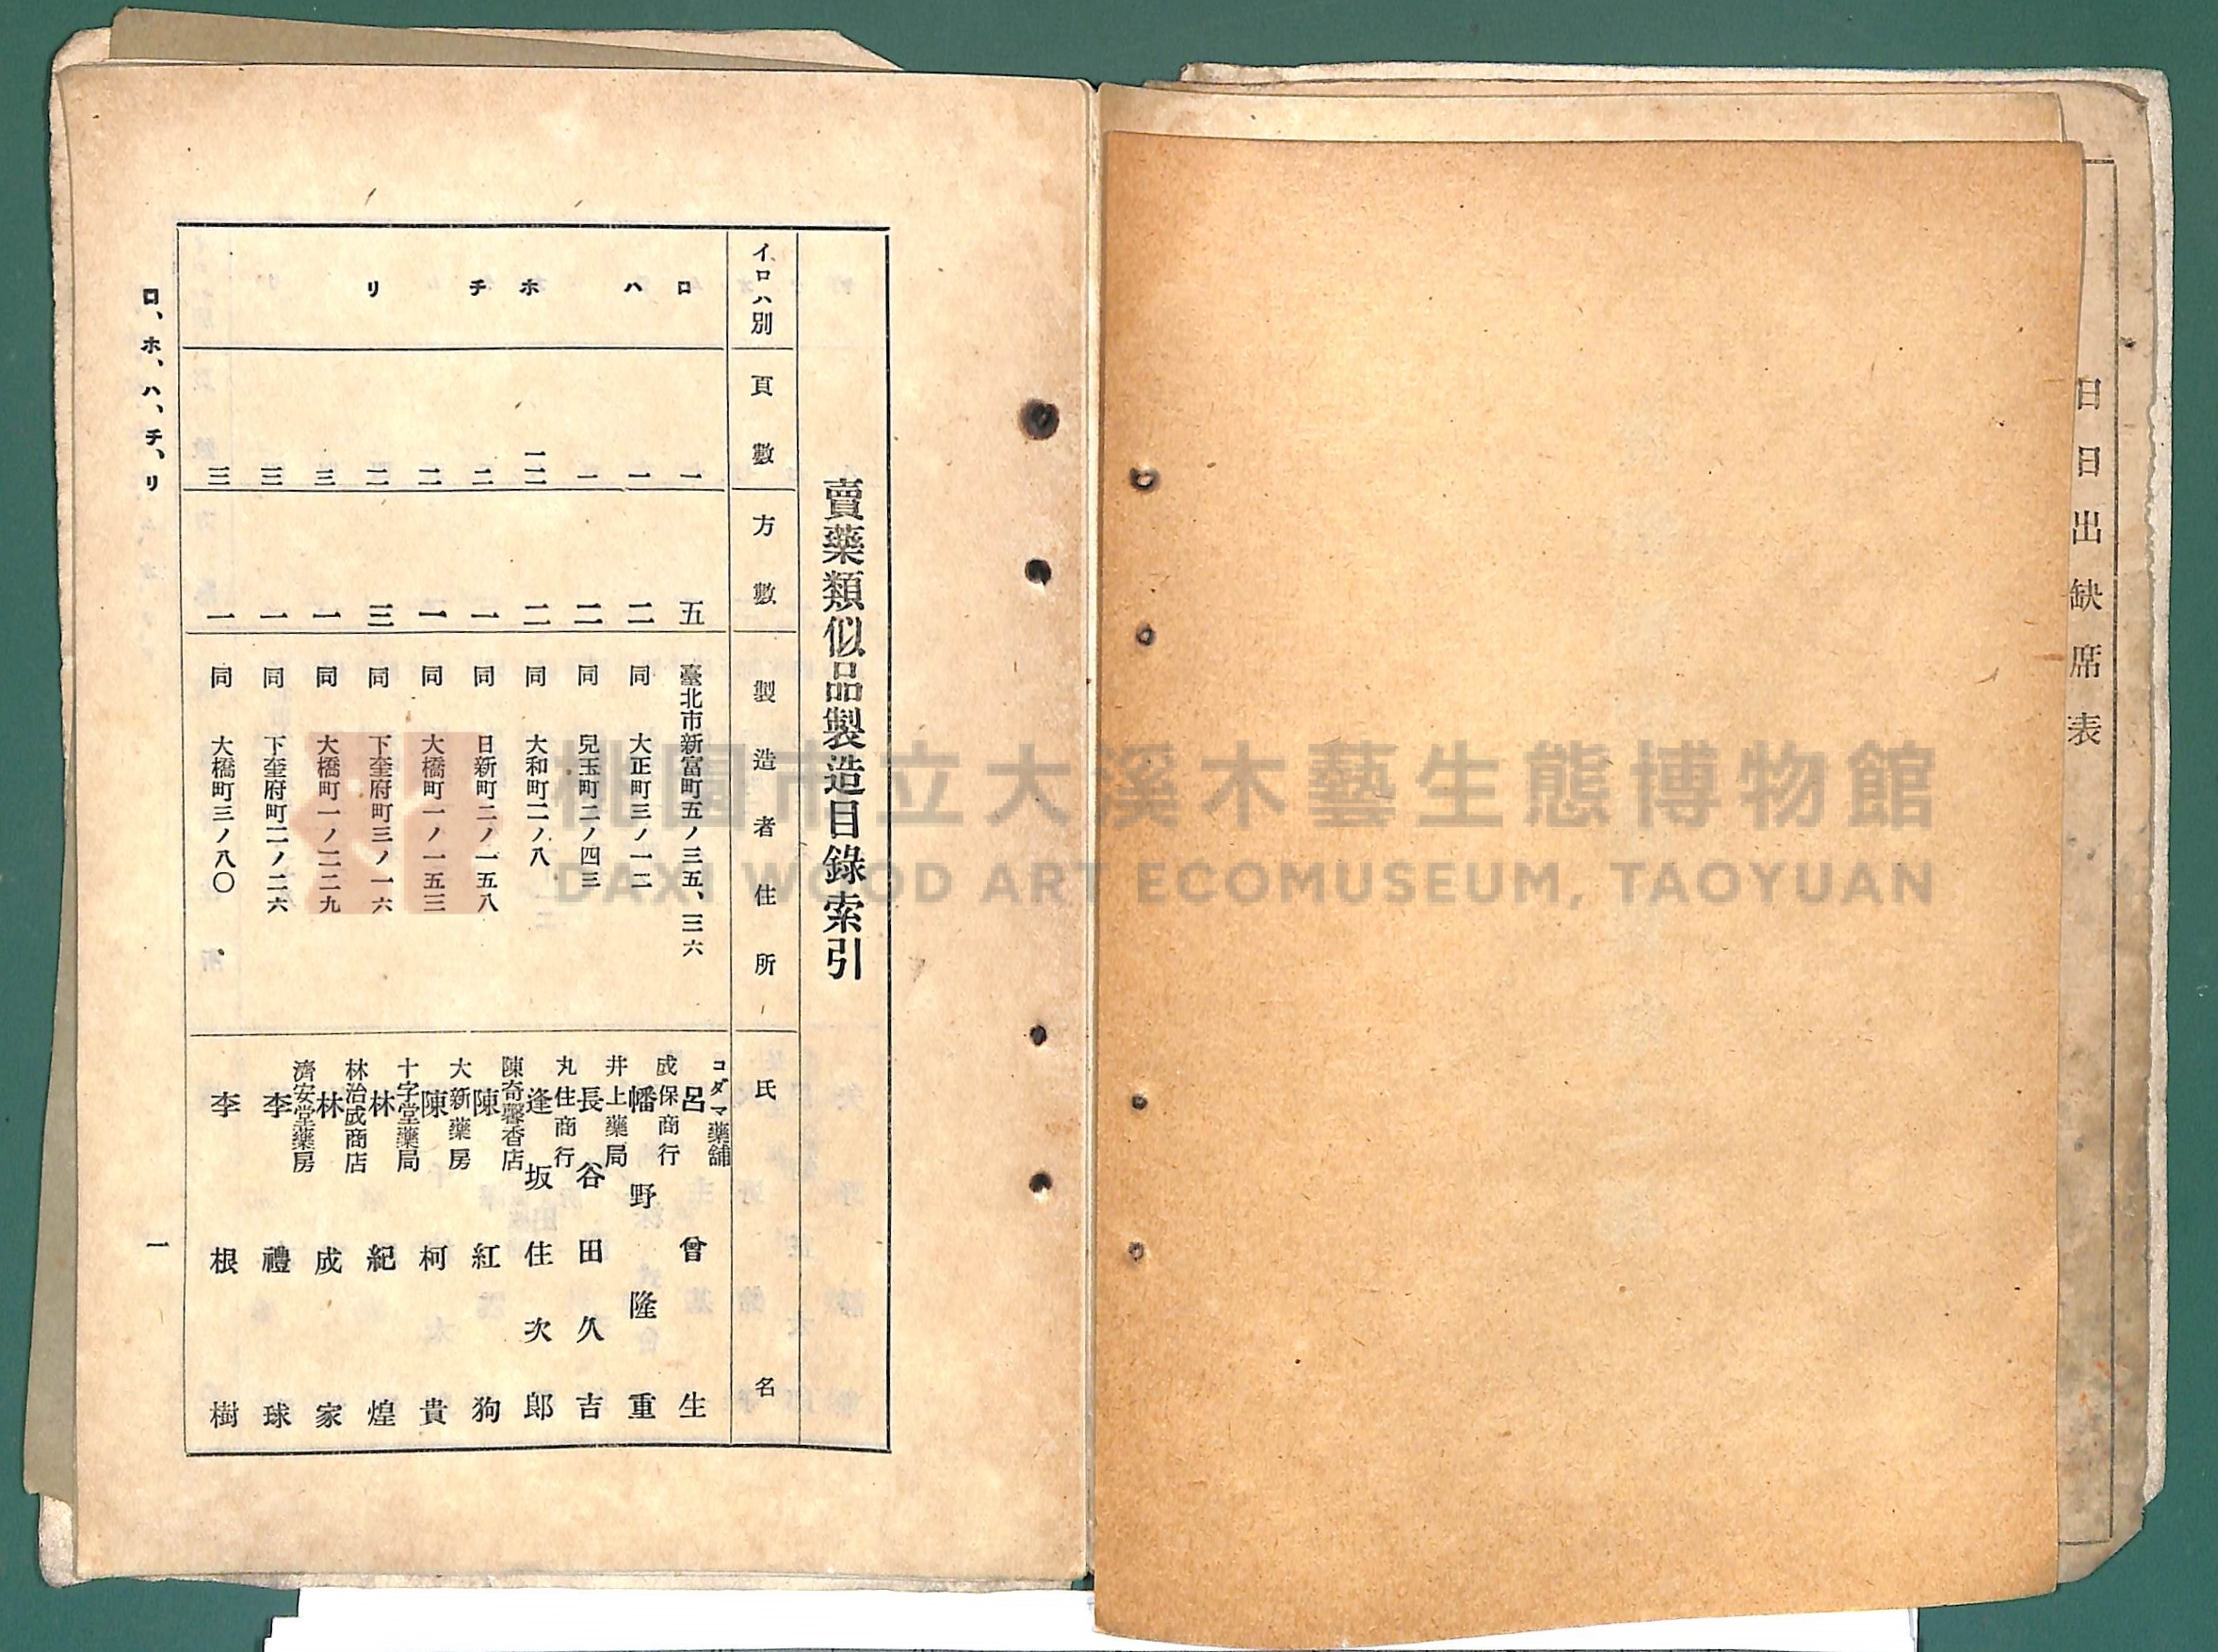 日日出缺席表
賣藥類似品製造目錄索引
イロハ別 頁數 方數 製造者住所 氏名
ロ 一 五 臺北市新富町五ノ三五、三六 コダマ藥舖 呂曾生
ハ 一 二 同 大正町三ノ一二 成保商行 幡野隆重
一 二 同 兒玉町二ノ四三 井上藥局 長谷田久吉
ホ 一二 二 同 大和町二ノ八 丸住商行 逢坂住次郎
チ 二 一 同 日新町二ノ一五八 陳奇馨香店 陳紅狗
二 一 同 大橋町一ノ一五三 大新藥房 陳柯貴
リ 二 三 同 下奎府町三ノ一六 十字堂藥局 林紀煌
三 一 同 大橋町一ノ二二九 林治成商店 林成家
三 一 同 下奎府町二ノ二六 濟安堂藥房 李禮球
三 一 同 大橋町三ノ八〇 李根樹
ロ、ホ、ハ、チ、リ
一
桃園市立大溪木藝生態博物館
DAXI WOOD ART ECOMUSEUM, TAOYUAN